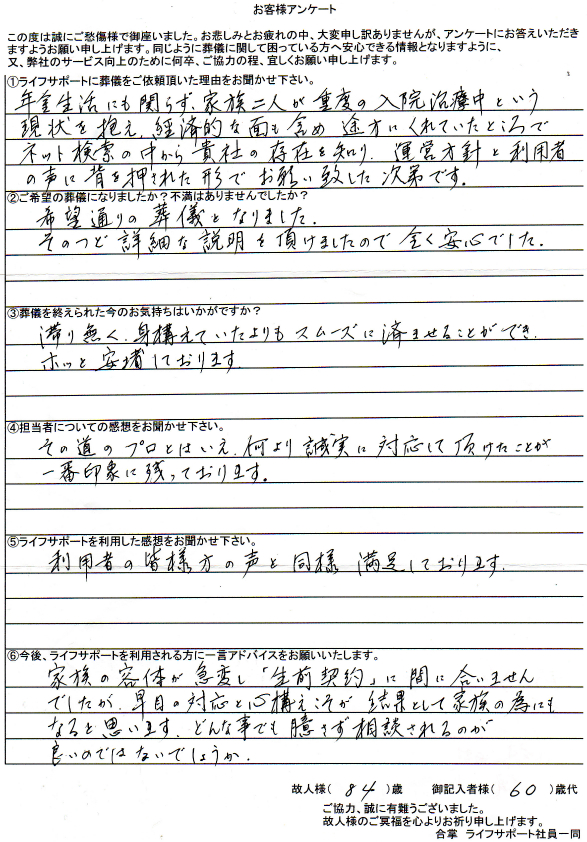 お客様アンケート
この度は誠にご愁傷様で御座いました。お悲しみとお疲れの中、大変申し訳ありませんが、アンケートにお答えいただき
ますようお願い申し上げます。同じように葬儀に関して困っている方へ安心できる情報となりますように、
又、弊社のサービス向上のために何卒、ご協力の程、宜しくお願い申し上げます。
①ライフサポートに葬儀をご依頼頂いた理由をお聞かせ下さい。
年金生活にも関らず、家族二人が重度の入院治療中という
現状を抱え、経済的な面も含め途方にくれていたところで
ネット検索の中から貴社の存在を知り、運営方針と利用者
の声に背を押された形でお願い致した次第です。
②ご希望の葬儀になりましたか？不満はありませんでしたか？
希望通りの葬儀となりました。
そのつど詳細な説明を頂けましたので全く安心でした。
③葬儀を終えられた今のお気持ちはいかがですか？
滞り無く、身構えていたよりもスムーズに済ませることができ、
ホッと安堵しております。
④担当者についての感想をお聞かせ下さい。
その道のプロとはいえ、何より誠実に対応して頂けたことが
一番印象に残っております。
⑤ライフサポートを利用した感想をお聞かせ下さい。
利用者の皆様方の声と同様満足しております。
⑥今後、ライフサポートを利用される方に一言アドバイスをお願いいたします。
家族の容体が急変し「生前契約」に間に合いません
でしたが、早目の対応と心構えこそが結果として家族の為にも
なると思います。どんな事でも臆さず相談されるのが
良いのではないでしょうか。
故人様( 84 )歳 御記入者様( 60 )歳代
ご協力、誠に有難うございました。
故人様のご冥福を心よりお祈り申し上げます。
合掌 ライフサポート社員一同